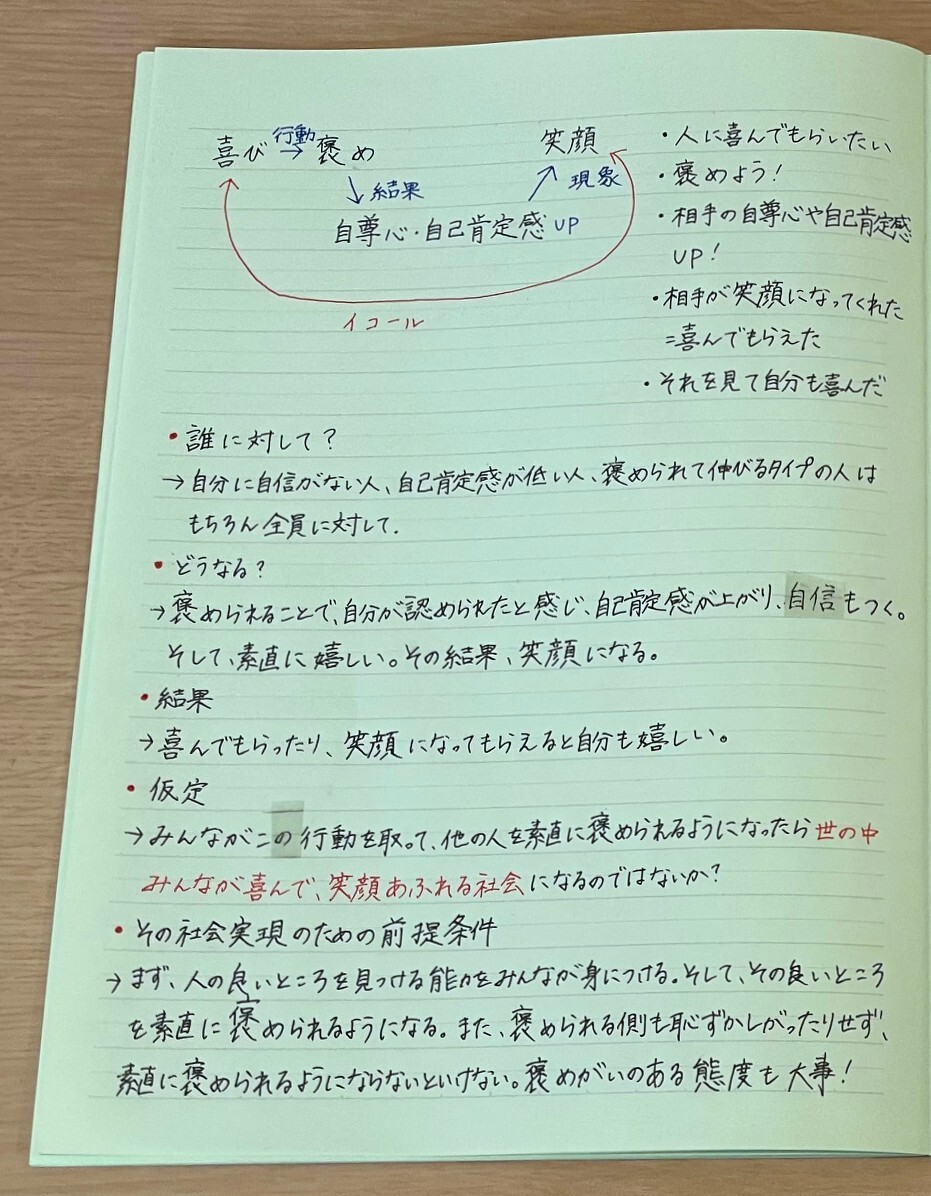 喜び 行動→ 褒め 笑顔
↓結果 ↗現象
自尊心・自己肯定感UP
イコール
・人に喜んでもらいたい
・褒めよう!
・相手の自尊心や自己肯定感
UP!
・相手が笑顔になってくれた
=喜んでもらえた
・それを見て自分も喜んだ
・誰に対して?
→自分に自信がない人、自己肯定感が低い人、褒められて伸びるタイプの人は
もちろん全員に対して.
・どうなる?
→褒められることで、自分が認められたと感じ、自己肯定感が上がり、自信もつく。
そして、素直に嬉しい。その結果、笑顔になる。
・結果
→喜んでもらったり、笑顔になってもらえると自分も嬉しい。
・仮定
→みんながこの行動を取って、他の人を素直に褒められるようになったら世の中
みんなが喜んで、笑顔あふれる社会になるのではないか?
・その社会実現のための前提条件
→まず、人の良いところを見つける能力をみんなが身につける。そして、その良いところ
を素直に褒められるようになる。また、褒められる側も恥ずかしがったりせず、
素直に褒められるようにならないといけない。褒めがいのある態度も大事!